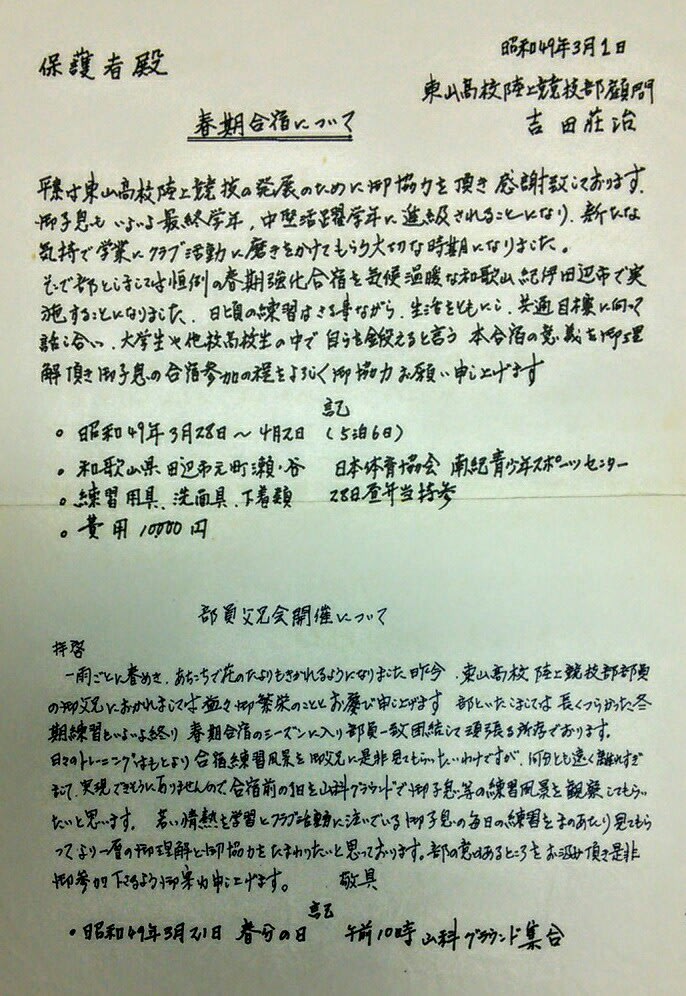 昭和49年3月1日
保護者殿
東山高校陸上競技部顧問
吉田荘治
春期合宿について
平素は東山高校陸上競技の発展のために御協力を頂き感謝致しております。
御子息もいよいよ最終学年,中堅活躍学年に進級されることになり、新たな
気持で学業にクラブ活動に磨きをかけてもらう大切な時期になりました。
そこで部としましては恒例の春期強化合宿を気候温暖な和歌山紀伊田辺市で実
施することになりました。日頃の練習はさる事ながら、生活をともにし、共通目標に向って
話し合い、大学生や他校高校生の中で自らを鍛えると言う本合宿の意義を御理
解頂き御子息の合宿参加の程をよろしく御協力お願い申し上げます
記
• 昭和49年3月28日〜4月2日 (5泊6日)
• 和歌山県田辺市元町瀬・谷 日本体育協会 南紀青少年スポーツセンター
• 練習用具、洗面具、下着類 28日昼弁当持参
• 費用 10,000円
部員父兄会開催について
拝啓
一雨ごとに春めき、あちこちで花のたよりもきかれるようになりました昨今、東山高校陸上競技部部員
の御父兄におかれましては益々御繁栄のこととお慶び申し上げます 部といたしましては長くつらかった冬
期練習もいよいよ終り 春期合宿のシーズンに入り部員一致団結して頑張る所存であります。
日々のトレーニングはもとより合宿練習風景を御父兄に是非見てもらいたいわけですが、何分とも遠く離れすぎ
まして、実現できそうにありませんので、合宿前の1日を山科グラウンドで御子息等の練習風景を観察してもらい
たいと思います。 若い情熱を学習とクラブ活動に注いでいる御子息の毎日の練習をまのあたり見てもら
ってより一層の御理解と御協力をたまわりたいと思っております。部の意のあるところをお汲み頂き是非
御参加下さるよう御案内申し上げます。 敬具
記
• 昭和49年3月21日 春分の日 午前10時 山科グラウンド集合